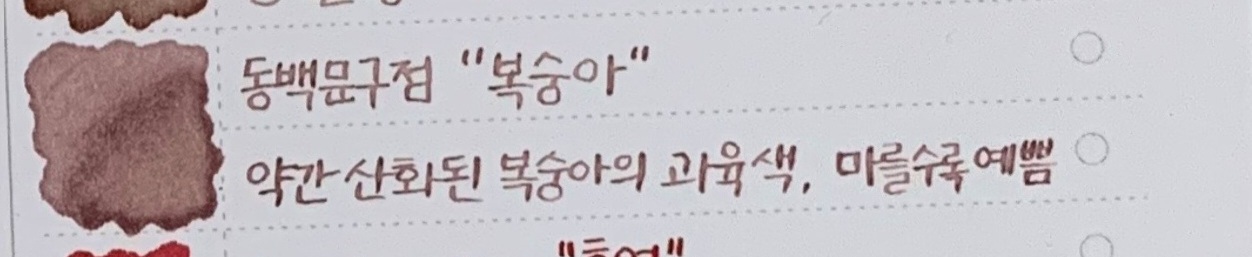 동백문구점 "복숭아"
약간 산화된 복숭아의 과육색, 마를수록 예쁨